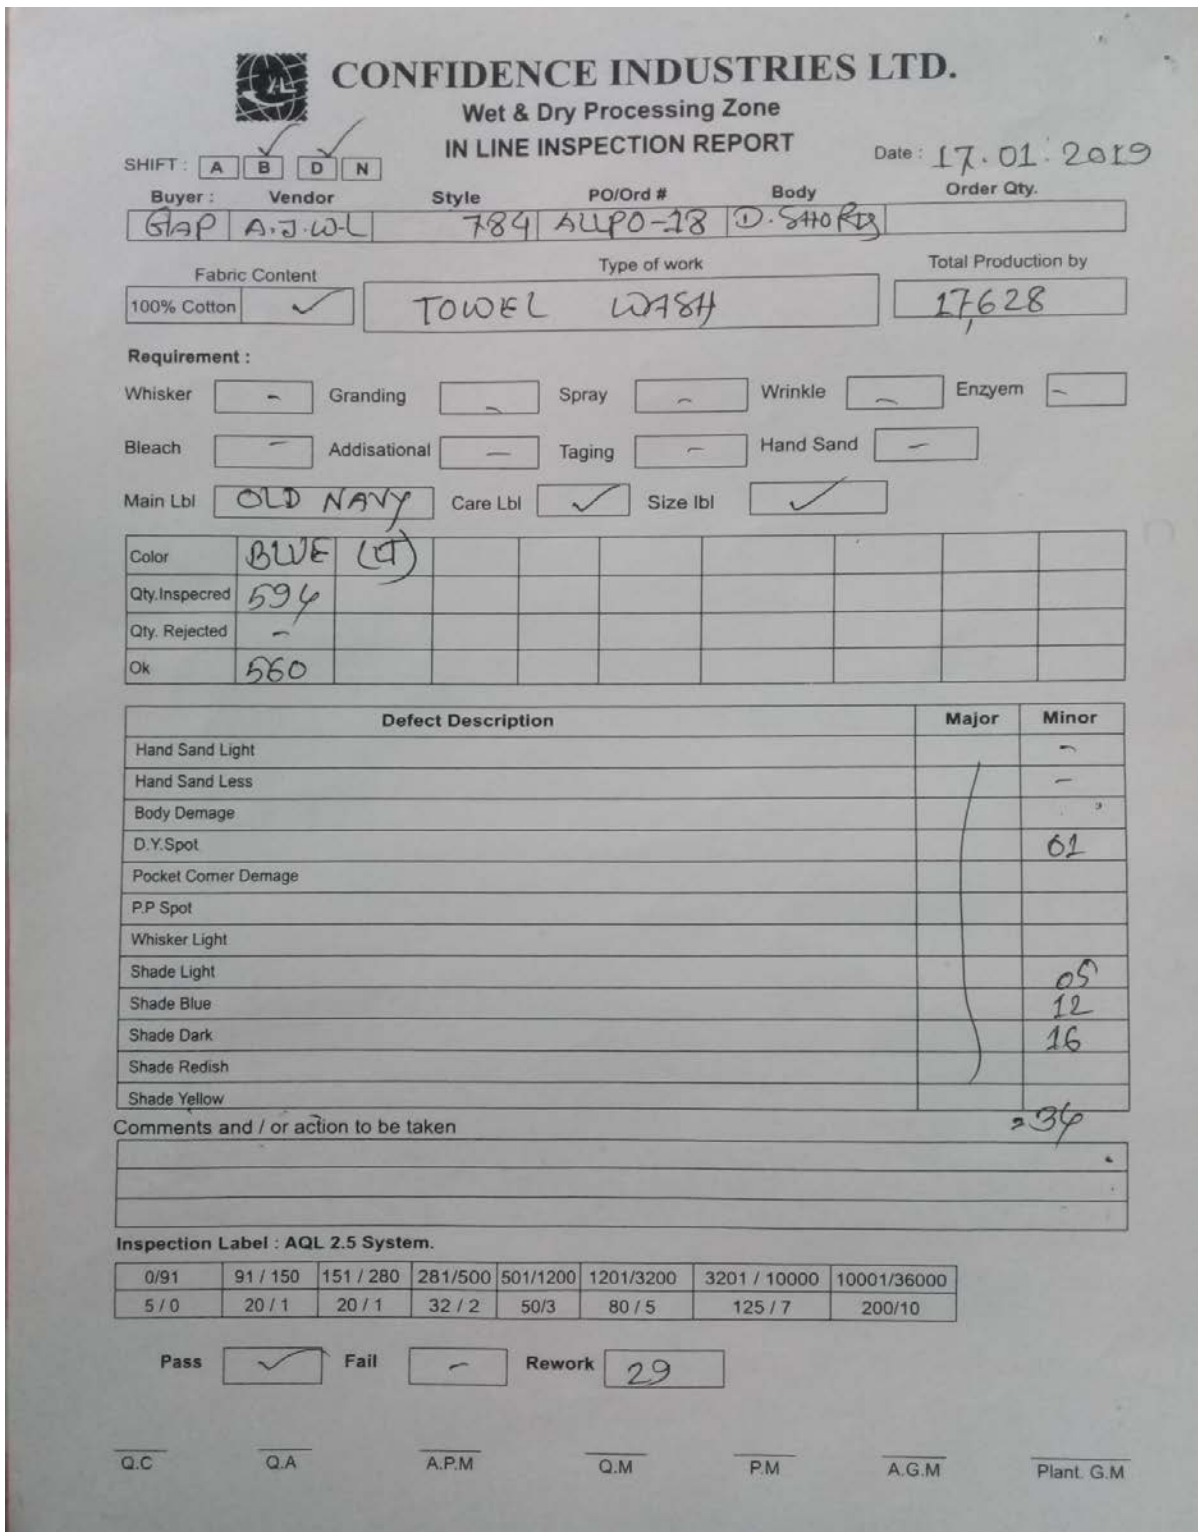 CONFIDENCE INDUSTRIES LTD.
Wet & Dry Processing Zone
IN LINE INSPECTION REPORT
SHIFT : A B D N
Date : 17.01.2019
Buyer : Vendor Style PO/Ord # Body Order Qty.
GAP A.J.W.L 784 ALLPO-18 D.SHORTS
Fabric Content Type of work Total Production by
100% Cotton ✓ TOWEL WASH 17,628
Requirement :
Whisker - Granding - Spray - Wrinkle - Enzyem -
Bleach - Addisational - Taging - Hand Sand -
Main Lbl OLD NAVY Care Lbl ✓ Size lbl ✓
Color BLUE (LT)
Qty.Inspecred 594
Qty. Rejected -
Ok 560
Defect Description Major Minor
Hand Sand Light -
Hand Sand Less -
Body Demage
D.Y.Spot 01
Pocket Corner Demage
P.P Spot
Whisker Light
Shade Light 05
Shade Blue 12
Shade Dark 16
Shade Redish
Shade Yellow
Comments and / or action to be taken =34
Inspection Label : AQL 2.5 System.
0/91 91 / 150 151 / 280 281/500 501/1200 1201/3200 3201 / 10000 10001/36000
5 / 0 20 / 1 20 / 1 32 / 2 50/3 80 / 5 125 / 7 200/10
Pass ✓ Fail - Rework 29
Q.C Q.A A.P.M Q.M P.M A.G.M Plant. G.M